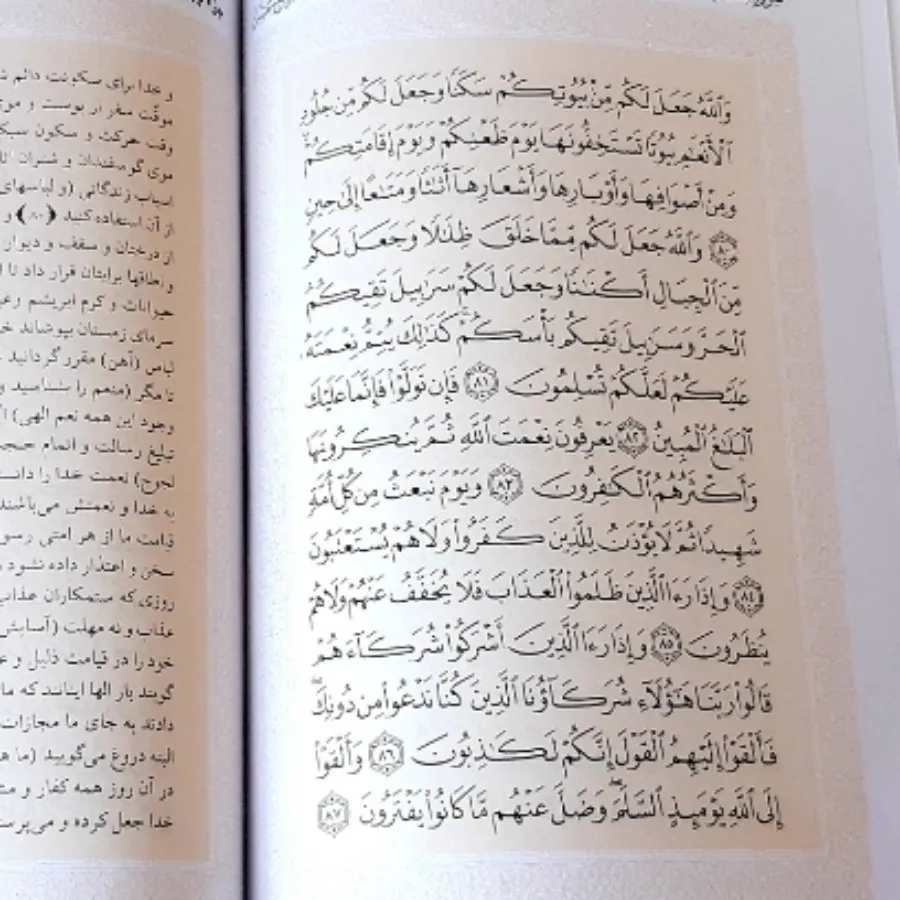 وَٱللَّهُ جَعَلَ لَكُم مِّنۢ بُيُوتِكُمْ سَكَنًا وَجَعَلَ لَكُم مِّن جُلُودِ
ٱلْأَنْعَٰمِ بُيُوتًا تَسْتَخِفُّونَهَا يَوْمَ ظَعْنِكُمْ وَيَوْمَ إِقَامَتِكُمْ
وَمِنْ أَصْوَافِهَا وَأَوْبَارِهَا وَأَشْعَارِهَآ أَثَٰثًا وَمَتَٰعًا إِلَىٰ حِينٍ
﴿٨٠﴾ وَٱللَّهُ جَعَلَ لَكُم مِّمَّا خَلَقَ ظِلَٰلًا وَجَعَلَ لَكُم
مِّنَ ٱلْجِبَالِ أَكْنَٰنًا وَجَعَلَ لَكُمْ سَرَٰبِيلَ تَقِيكُمُ
ٱلْحَرَّ وَسَرَٰبِيلَ تَقِيكُم بَأْسَكُمْ كَذَٰلِكَ يُتِمُّ نِعْمَتَهُۥ
عَلَيْكُمْ لَعَلَّكُمْ تُسْلِمُونَ ﴿٨١﴾ فَإِن تَوَلَّوْا۟ فَإِنَّمَا عَلَيْكَ
ٱلْبَلَٰغُ ٱلْمُبِينُ ﴿٨٢﴾ يَعْرِفُونَ نِعْمَتَ ٱللَّهِ ثُمَّ يُنكِرُونَهَا
وَأَكْثَرُهُمُ ٱلْكَٰفِرُونَ ﴿٨٣﴾ وَيَوْمَ نَبْعَثُ مِن كُلِّ أُمَّةٍ
شَهِيدًا ثُمَّ لَا يُؤْذَنُ لِلَّذِينَ كَفَرُوا۟ وَلَا هُمْ يُسْتَعْتَبُونَ
﴿٨٤﴾ وَإِذَا رَءَا ٱلَّذِينَ ظَلَمُوا۟ ٱلْعَذَابَ فَلَا يُخَفَّفُ عَنْهُمْ وَلَا هُمْ
يُنظَرُونَ ﴿٨٥﴾ وَإِذَا رَءَا ٱلَّذِينَ أَشْرَكُوا۟ شُرَكَآءَهُمْ
قَالُوا۟ رَبَّنَا هَٰٓؤُلَآءِ شُرَكَآؤُنَا ٱلَّذِينَ كُنَّا نَدْعُوا۟ مِن دُونِكَ
فَأَلْقَوْا۟ إِلَيْهِمُ ٱلْقَوْلَ إِنَّكُمْ لَكَٰذِبُونَ ﴿٨٦﴾ وَأَلْقَوْا۟
إِلَى ٱللَّهِ يَوْمَئِذٍ ٱلسَّلَمَ وَضَلَّ عَنْهُم مَّا كَانُوا۟ يَفْتَرُونَ ﴿٨٧﴾
و خدا برای سکونت دائم
موقّت سفر از پوست و
وقت حرکت و سکون
موی گوسفندان و شتران
اسباب زندگانی (و لباسهای
از آن استفاده کنید ﴿۸۰﴾ و
از درختان و سقف و دیوار
و اطاقها برایتان قرار داد تا
حیوانات و کرم ابریشم
سرمای زمستان بپوشاند
لباس (آهن) مقرر گردانید
تا مگر (منعم را بشناسید و
وجود این همه نعم الهی)
تبلیغ رسالت و اتمام
لجوج) نعمت خدا را
به خدا و نعمتش می‌باشند
قیامت ما از هر امتی
سخن و اعتذار داده نشود
روزی که ستمکاران عذاب
عذاب و نه مهلت (آسایش
خود را در قیامت ذلیل و
گویند بار الها اینانند که
دادند به جای ما مجازات
البته دروغ می‌گویید (ما
در آن روز همه کفار و
خدا جعل کرده و